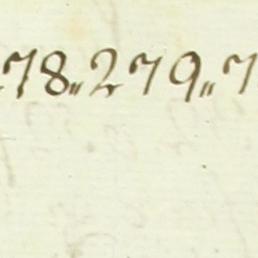 78„279„7